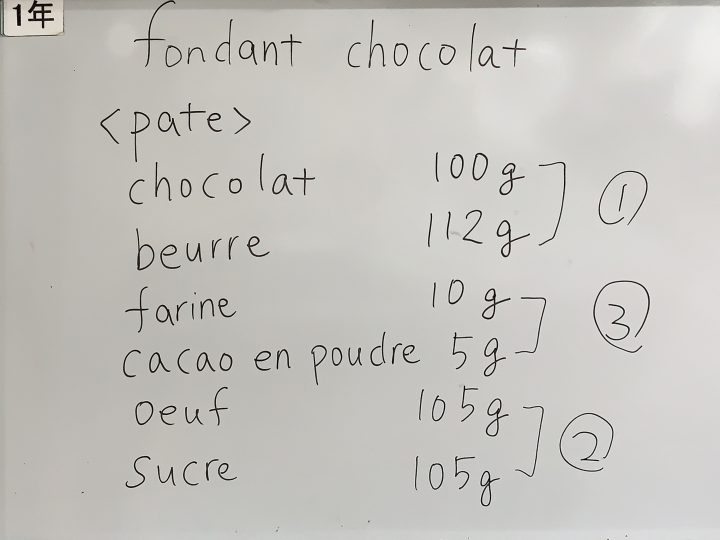 1年
fondant chocolat
<pate>
chocolat 100g
beurre 112g ①
farine 10g
cacao en poudre 5g ③
oeuf 105g
sucre 105g ②